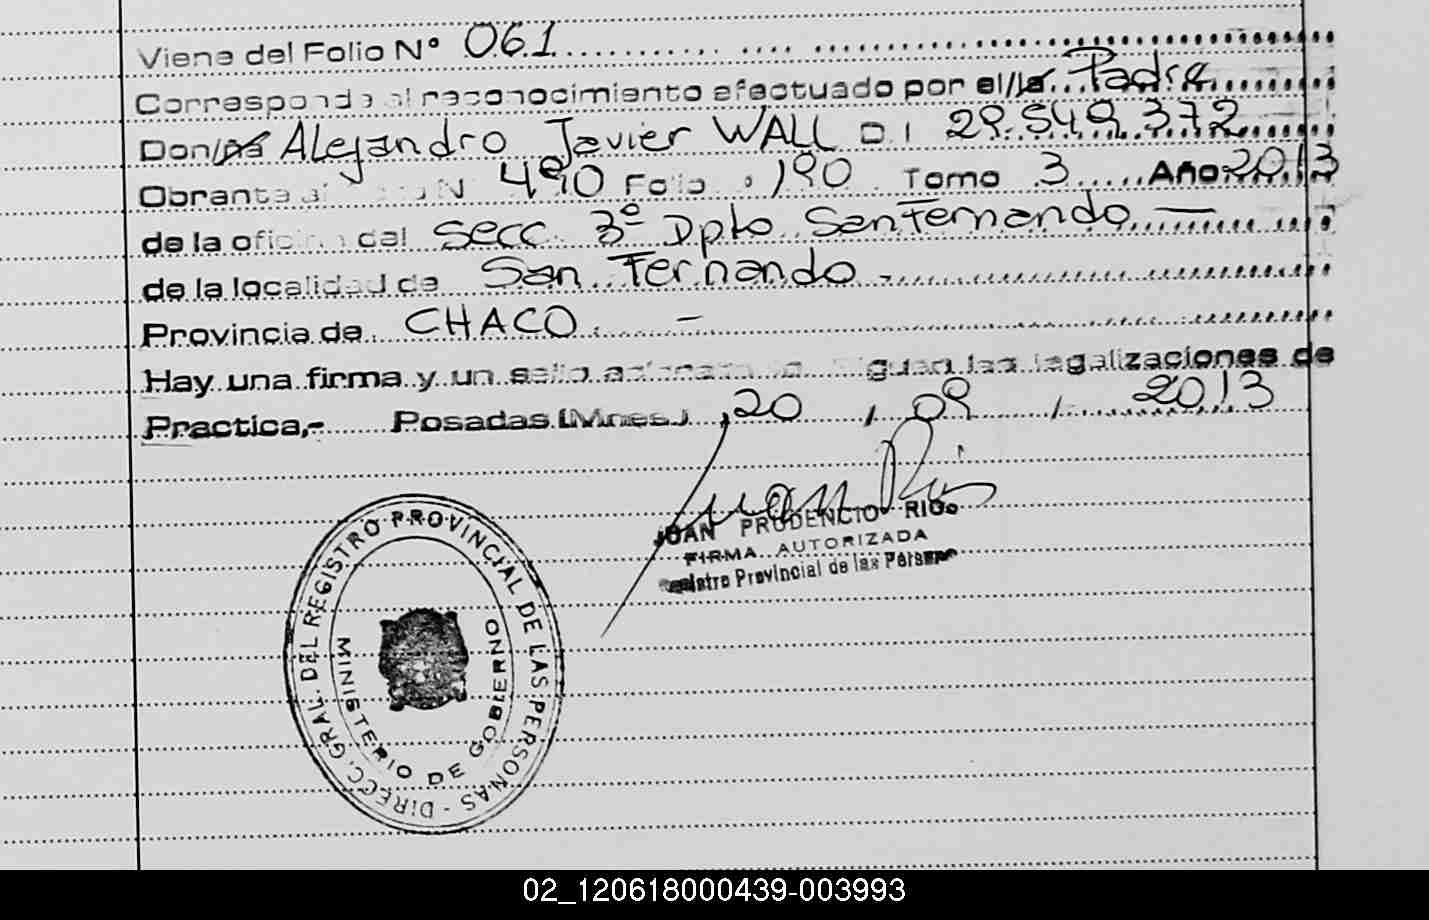 Viene del Folio N° 061
Corresponde al reconocimiento efectuado por el/la Padre
Don/ña Alejandro Javier WALL D.I 29.549.372
Obrante al N 490 Folio 190 Tomo 3 Año 2013
de la oficina del Secc 3° Dpto San Fernando —
de la localidad de San Fernando -
Provincia de CHACO. -
Hay una firma y un sello aclaratorio. Siguen las legalizaciones de
Practica,- Posadas (Mnes.) ,20 / 09 / 2013
Juan Rios
JUAN PRUDENCIO RIOS
FIRMA AUTORIZADA
Registro Provincial de las Personas
DIRECC. GRAL. DEL REGISTRO PROVINCIAL DE LAS PERSONAS -
MINISTERIO DE GOBIERNO
02_120618000439-003993